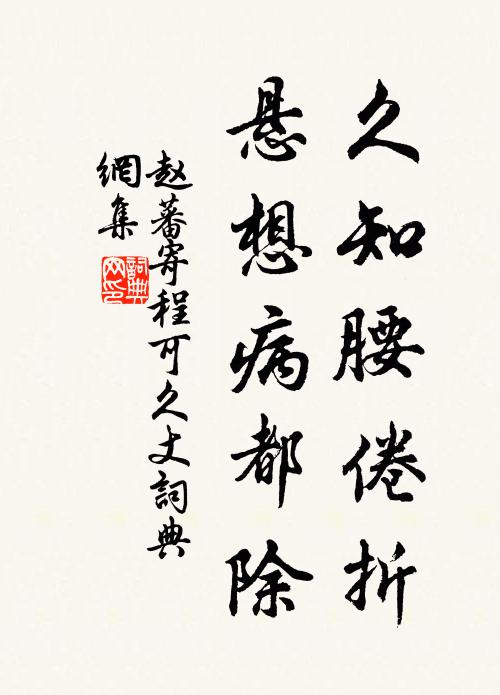 久知腰倦折
悬想病都除
赵蕃寄程可久丈詞典
網集
詞典网印